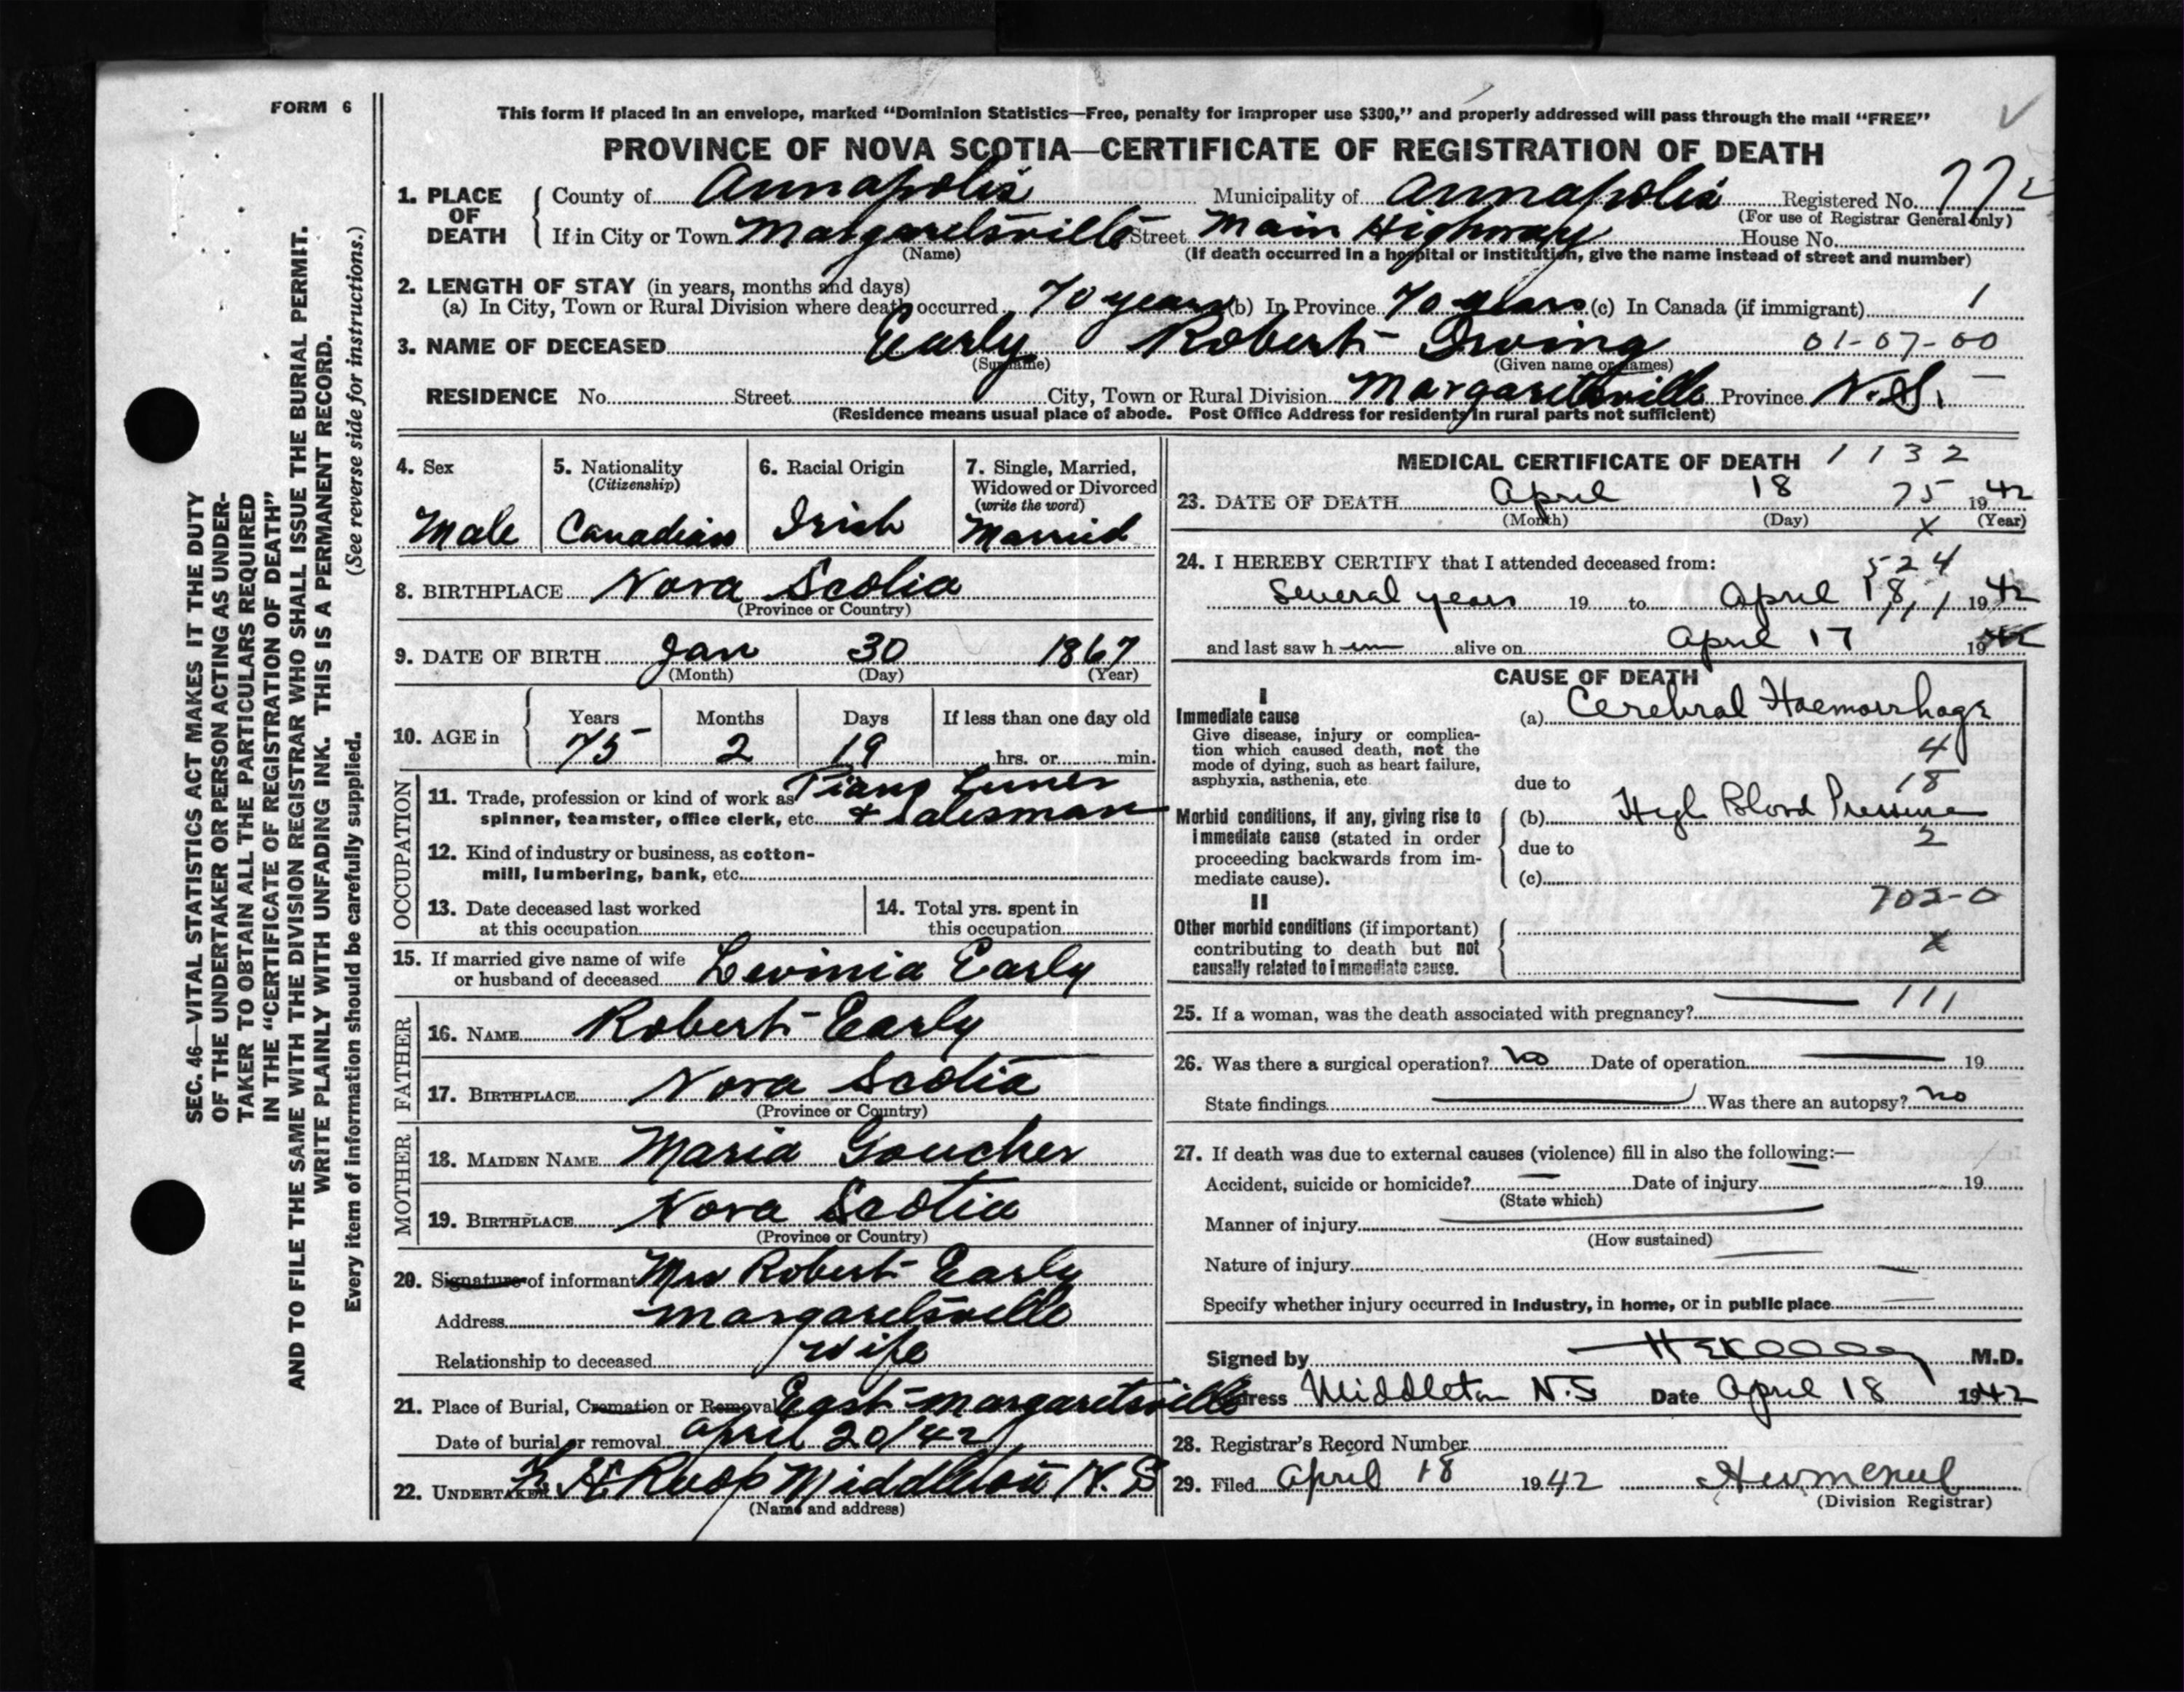 FORM 6
This form if placed in an envelope, marked “Dominion Statistics—Free, penalty for improper use $300,” and properly addressed will pass through the mail “FREE”
PROVINCE OF NOVA SCOTIA—CERTIFICATE OF REGISTRATION OF DEATH
1. PLACE OF DEATH County of Annapolis Municipality of Annapolis Registered No. 772
(For use of Registrar General only)
If in City or Town Margaretsville Street Main Highway House No.
(Name) (If death occurred in a hospital or institution, give the name instead of street and number)
2. LENGTH OF STAY (in years, months and days)
(a) In City, Town or Rural Division where death occurred 70 years (b) In Province 70 years (c) In Canada (if immigrant) 1
3. NAME OF DECEASED Early Robert Irving 01-07-00
(Surname) (Given name or names)
RESIDENCE No. Street City, Town or Rural Division Margaretsville Province N.S.
(Residence means usual place of abode. Post Office Address for residents in rural parts not sufficient)
SEC. 46—VITAL STATISTICS ACT MAKES IT THE DUTY
OF THE UNDERTAKER OR PERSON ACTING AS UNDER-
TAKER TO OBTAIN ALL THE PARTICULARS REQUIRED
IN THE “CERTIFICATE OF REGISTRATION OF DEATH”
AND TO FILE THE SAME WITH THE DIVISION REGISTRAR WHO SHALL ISSUE THE BURIAL PERMIT.
WRITE PLAINLY WITH UNFADING INK. THIS IS A PERMANENT RECORD.
Every item of information should be carefully supplied. (See reverse side for instructions.)
4. Sex 5. Nationality 6. Racial Origin 7. Single, Married,
(Citizenship) Widowed or Divorced
(write the word)
Male Canadian Irish Married
8. BIRTHPLACE Nova Scotia
(Province or Country)
9. DATE OF BIRTH Jan 30 1867
(Month) (Day) (Year)
10. AGE in Years Months Days If less than one day old
75 2 19 hrs. or min.
OCCUPATION
11. Trade, profession or kind of work as Piano Tuner
spinner, teamster, office clerk, etc. + Salesman
12. Kind of industry or business, as cotton-
mill, lumbering, bank, etc.
13. Date deceased last worked at this occupation
14. Total yrs. spent in this occupation
15. If married give name of wife
or husband of deceased Levinia Early
FATHER
16. NAME Robert Early
17. BIRTHPLACE Nova Scotia
(Province or Country)
MOTHER
18. MAIDEN NAME Maria Goucher
19. BIRTHPLACE Nova Scotia
(Province or Country)
20. Signature of informant Mrs Robert Early
Address Margaretsville
Relationship to deceased Wife
21. Place of Burial, Cremation or Removal East Margaretsville
Date of burial or removal April 20/42
22. UNDERTAKER Middleton N.S
(Name and address)
MEDICAL CERTIFICATE OF DEATH 1132
23. DATE OF DEATH April 18 75 1942
(Month) (Day) x (Year)
24. I HEREBY CERTIFY that I attended deceased from:
524
Several years 19 to April 18, 1942
111
and last saw h im alive on April 17 1942
CAUSE OF DEATH
I
Immediate cause (a) Cerebral Haemorrhage
Give disease, injury or complica-
tion which caused death, not the 4
mode of dying, such as heart failure,
asphyxia, asthenia, etc. due to 18
Morbid conditions, if any, giving rise to (b) High Blood Pressure
immediate cause (stated in order 2
proceeding backwards from im- due to
mediate cause). (c)
II 702-0
Other morbid conditions (if important)
contributing to death but not x
causally related to immediate cause.
25. If a woman, was the death associated with pregnancy? 111
26. Was there a surgical operation? No Date of operation 19
State findings Was there an autopsy? no
27. If death was due to external causes (violence) fill in also the following:—
Accident, suicide or homicide? Date of injury 19
(State which)
Manner of injury
(How sustained)
Nature of injury
Specify whether injury occurred in industry, in home, or in public place
Signed by M.D.
Address Middleton N.S Date April 18 1942
28. Registrar’s Record Number
29. Filed April 18 1942
(Division Registrar)